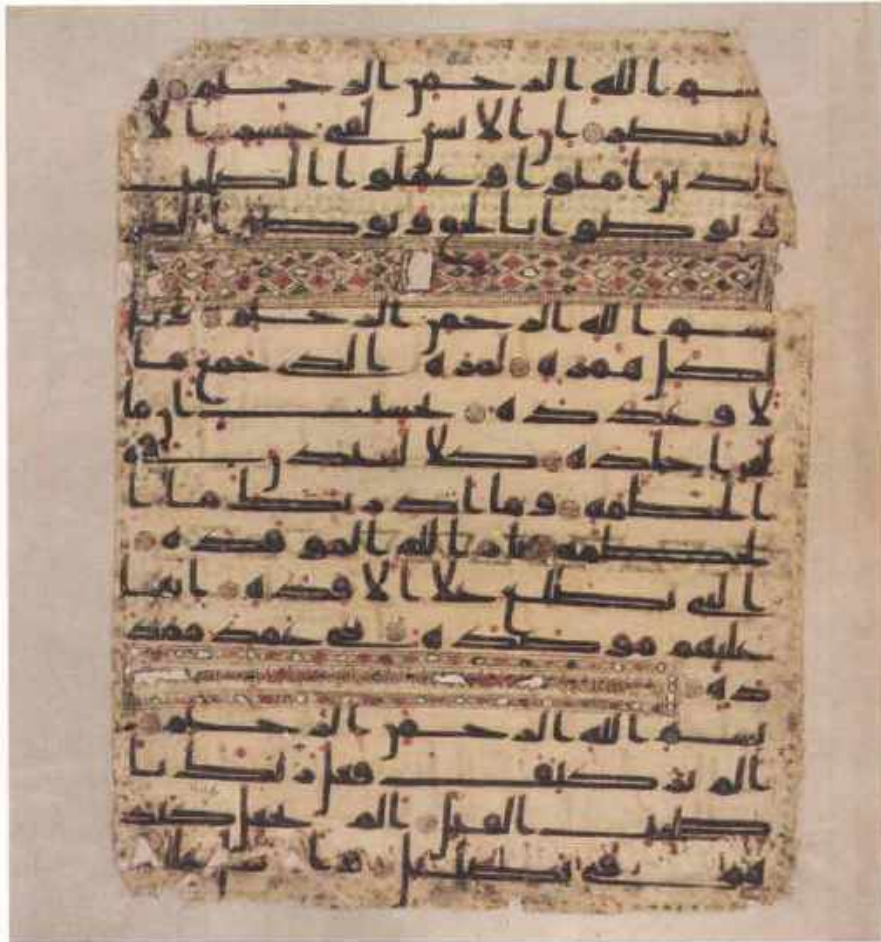 بسم الله الرحمن الرحيم و
العصر ان الانسن لفي خسر الا
الذين امنوا وعملوا الصلحت
و توصوا بالحق وتوصوا بالصبر
بسم الله الرحمن الرحيم ويل
لكل همزة لمزة الذي جمع ما
لا وعدده يحسب ان ما
له اخلده كلا لينبذن في
الحطمة وما ادريك ما ا
لحطمة نار الله الموقدة
التي تطلع علا الافدة انها
عليهم موصدة في عمد ممد
دة
بسم الله الرحمن الرحيم
الم تر كيف فعل ربك با
صحب الفيل الم يجعل كيد
هم في تضليل وارسل عليـ